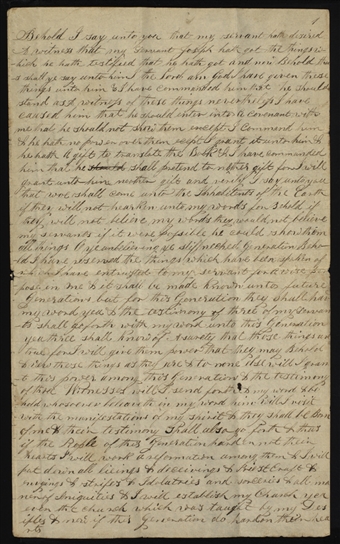 Behold I say unto you that my servant hath desired
A witness that my servant Joseph hath got the things w
hich he hath testified that he hath got and now Behold this
shall ye say unto him the Lord am God have given these
things unto him & I have commanded him that he should
stand as a witness of these things nevertheless I have
caused him that he should enter into a covenant with
me that he should not shew them except I command him
& he hath no power over them except I grant it unto him &
he hath a gift to translate the Book & I have commanded
him that he shall pretend to no other gift for I will
grant unto him no other gift and verily I say unto you
that woe shall come unto the Inhabitents of the Earth
if they will not hearken unto my words for Behold if
they will not believe my words they would not believe
my servants if it were possible he could show them
all things O ye unbelieving ye stiffnecked Generation Beho
ld I have reserved the things which have been spoken of
which I have entrusted to my servant for a wise pur
pose in me & it shall be made known unto future
Generations but for this Generation they shall have
my word yea & the testimony of three of my servan
ts shall go forth with my word unto this Generation
yea three shall know of A surety that these things are
true for I will give them power that they may Behold
& view these things as they are & to none else will I gran
t this power among this Generation & the testimony
of three Witnesses will I send forth & my word & be
hold whosoever believeth in my word him will I visit
with the manifestations of my Spirit & they shall be Born
of me & their testimony shall also go forth & thus
if the People of this Generation harden not their
hearts I will work a reformation among them & I will
put down all lieings & deceivings & Priest Craft &
envyings & strifes & Idolatries and sorceries & all man
ners of Iniquities & I will establish my Church yea
even the church which was taught by my Des
iples & now if this Generation do harden their hea
rts